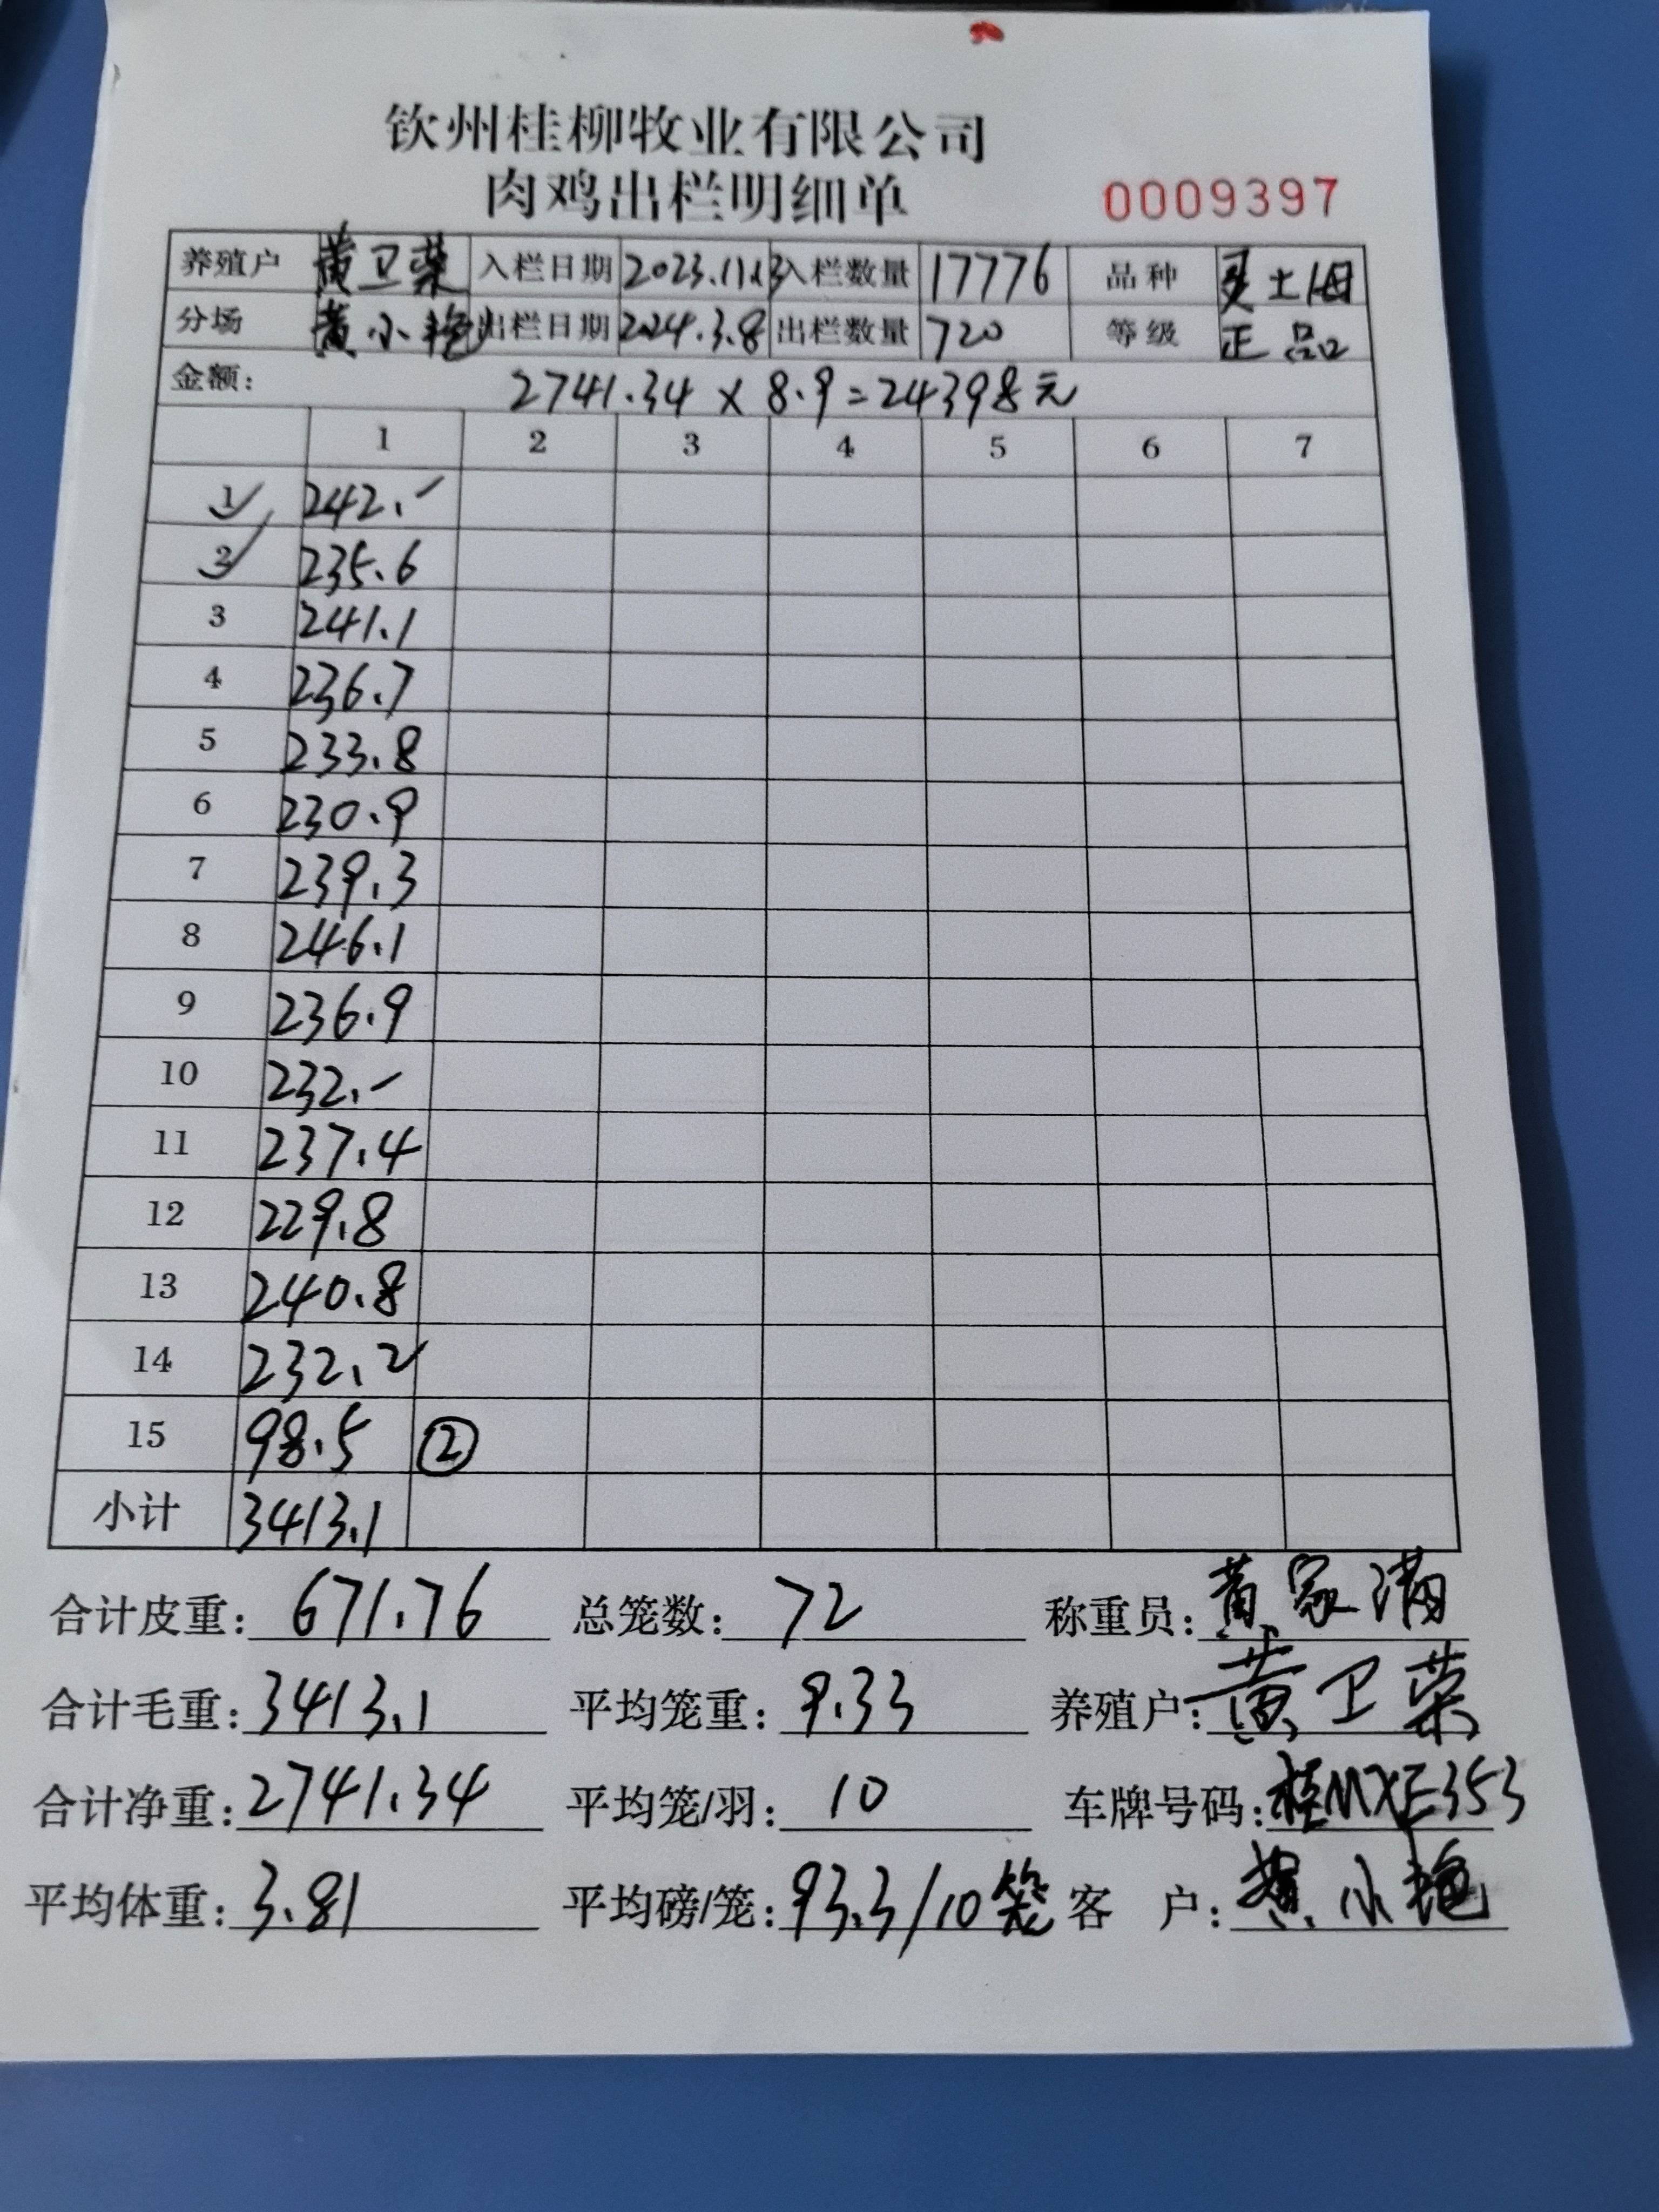 钦州桂柳牧业有限公司
肉鸡出栏明细单 0009397
养殖户 黄卫荣 入栏日期 2023.11.13 入栏数量 17776 品种 土母
分场 黄小艳 出栏日期 2024.3.8 出栏数量 720 等级 正品
金额: 2741.34 x 8.9=24398元
1 2 3 4 5 6 7
1 242.-
2 235.6
3 241.1
4 236.7
5 233.8
6 230.9
7 239.3
8 246.1
9 236.9
10 232.-
11 237.4
12 229.8
13 240.8
14 232.2
15 98.5 ②
小计 3413.1
合计皮重: 671.76 总笼数: 72 称重员: 黄家满
合计毛重: 3413.1 平均笼重: 9.33 养殖户: 黄卫荣
合计净重: 2741.34 平均笼/羽: 10 车牌号码: 桂MXE353
平均体重: 3.81 平均磅/笼: 93.3/10笼 客 户: 黄小艳